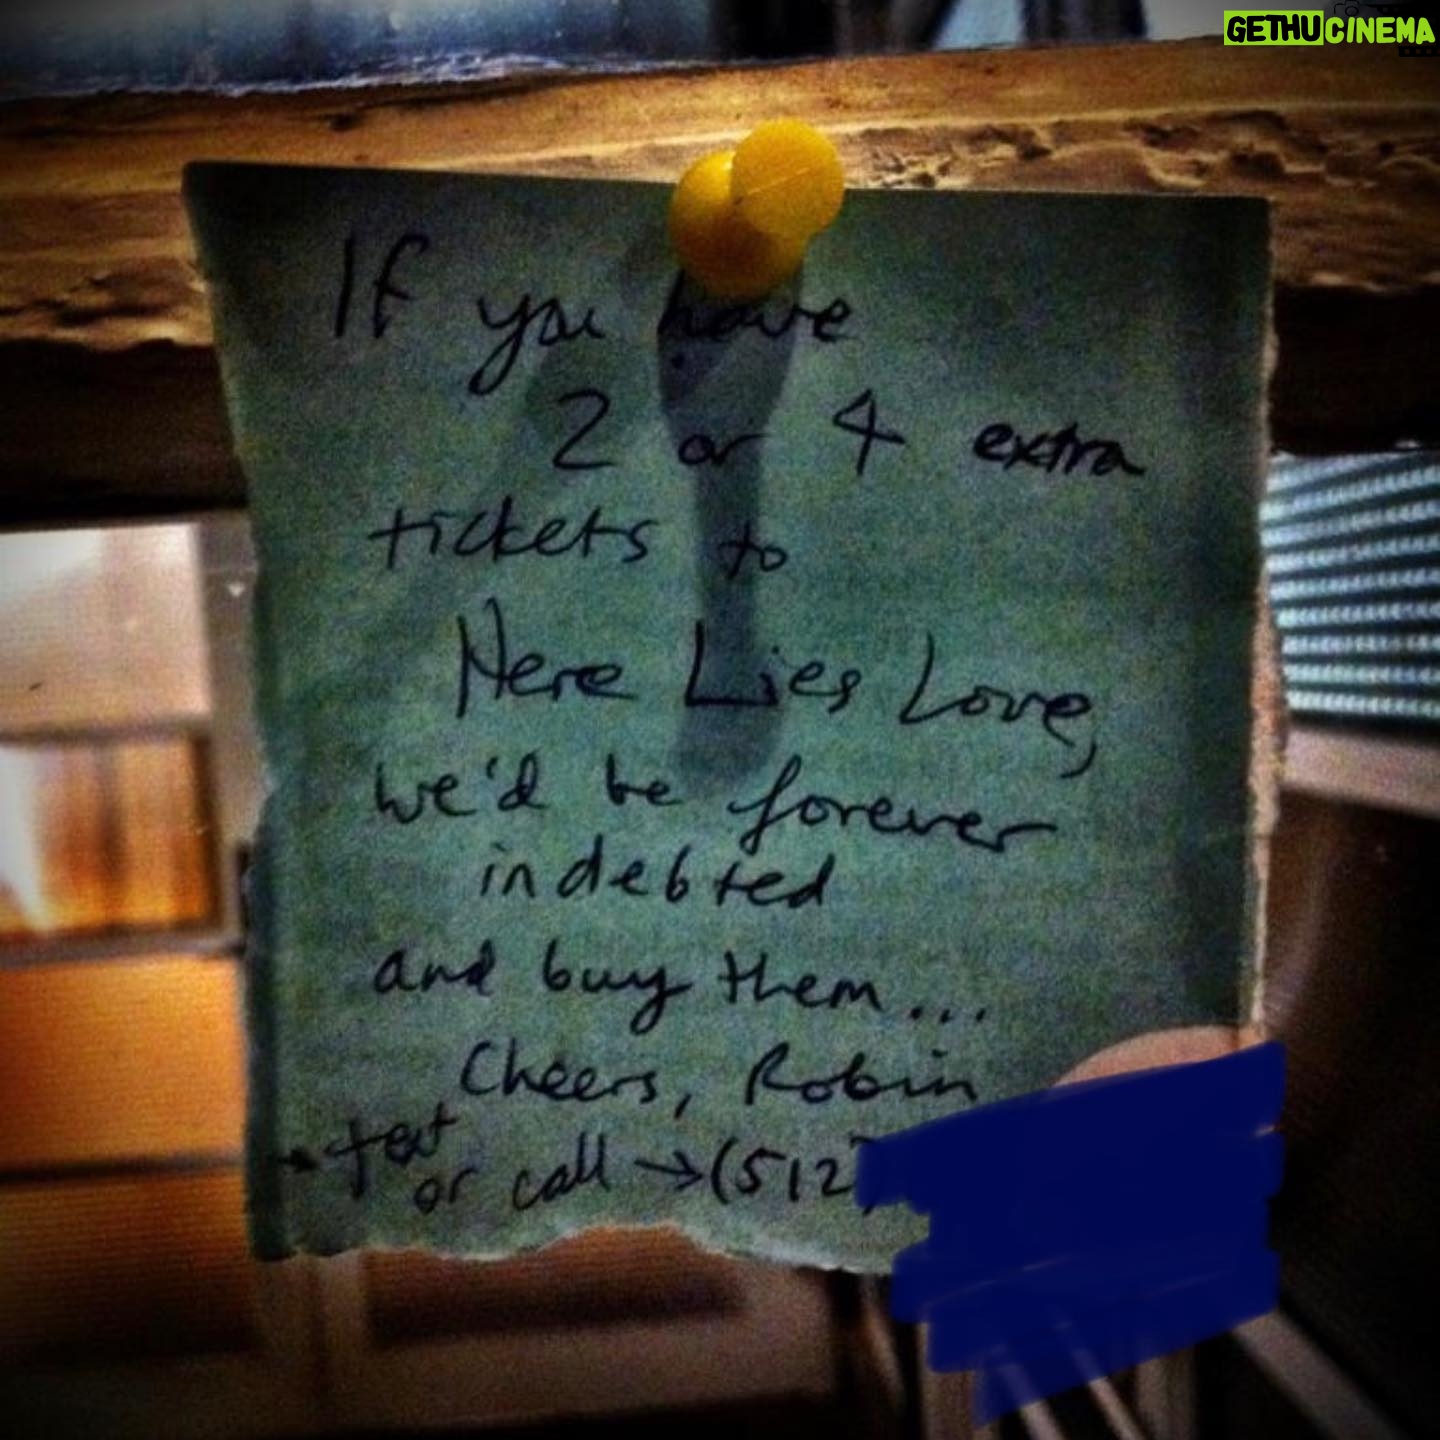 GETHUCINEMA
If you have
2 or 4 extra
tickets to
Here Lies Love,
we'd be forever
indebted
and buy them...
Cheers, Robin
→ text
or call → (512)